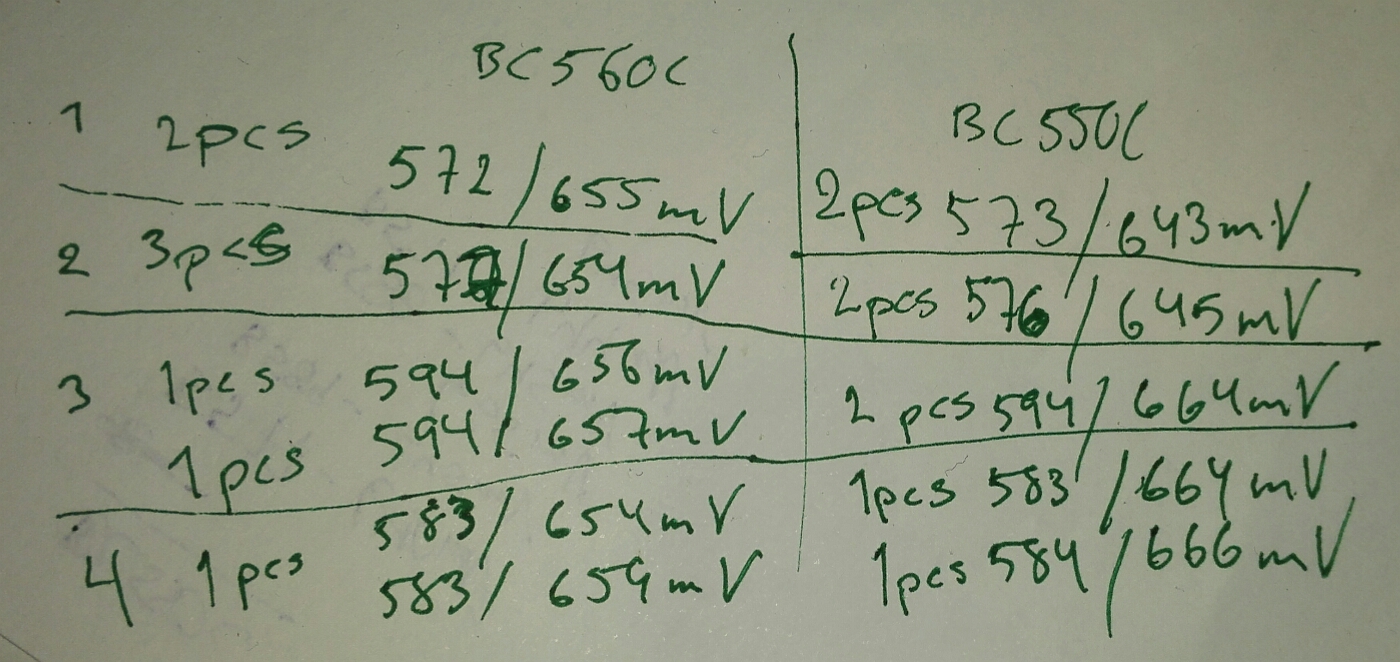 BC560C
BC550C
1 2pcs 572/655mV
2pcs 573/643mV
2 3pcs 577/654mV
2pcs 576/645mV
3 1pcs 594/656mV
2pcs 594/664mV
1pcs 594/657mV
583/654mV
1pcs 583/664mV
4 1pcs 583/654mV
1pcs 584/666mV